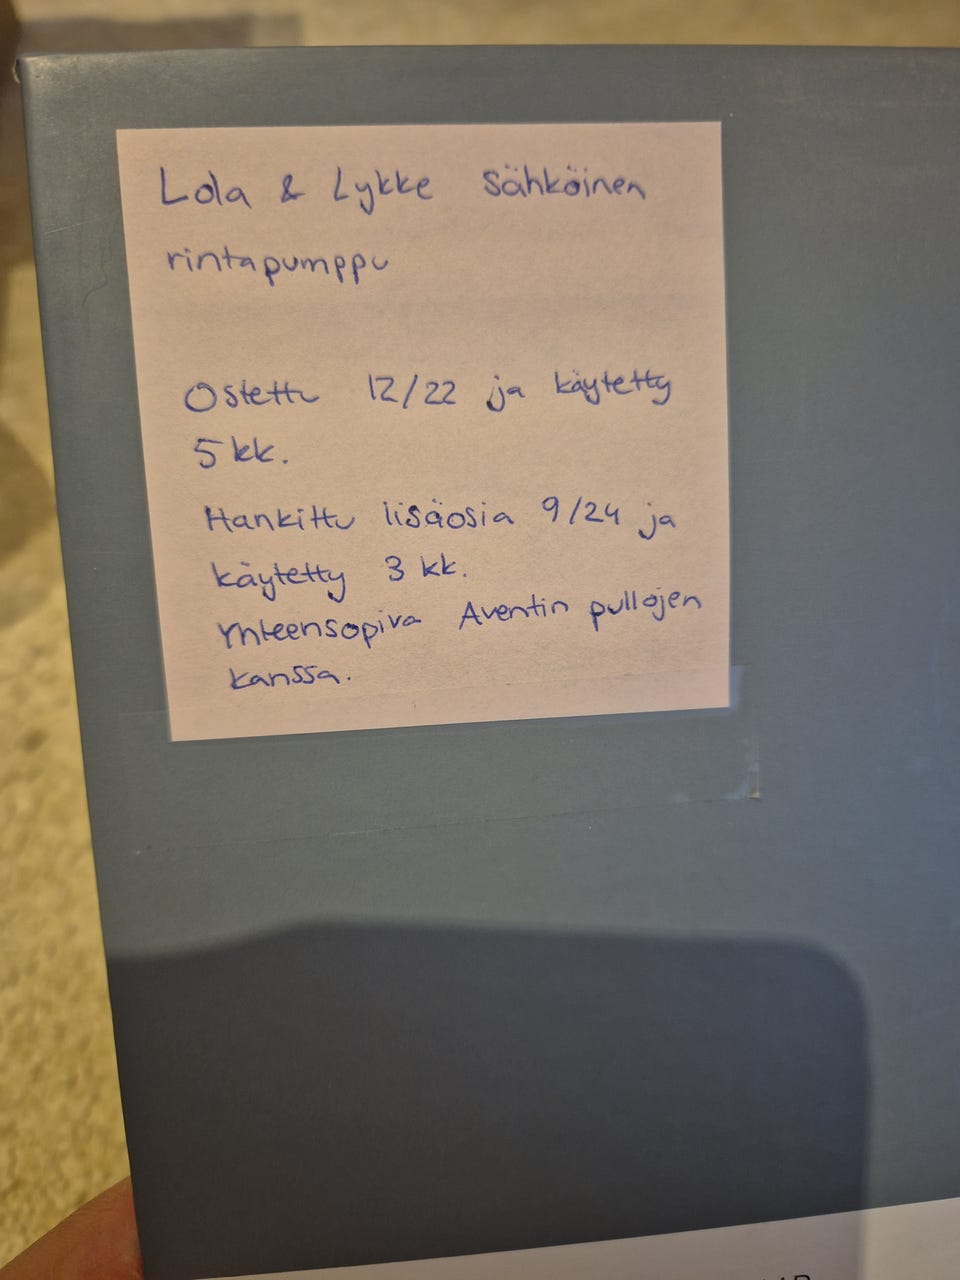 Lola & Lykke Sähköinen
rintapumppu
Ostettu 12/22 ja käytetty
5 kk.
Hankittu lisäosia 9/24 ja
käytetty 3 kk.
Yhteensopiva Aventin pullojen
kanssa.